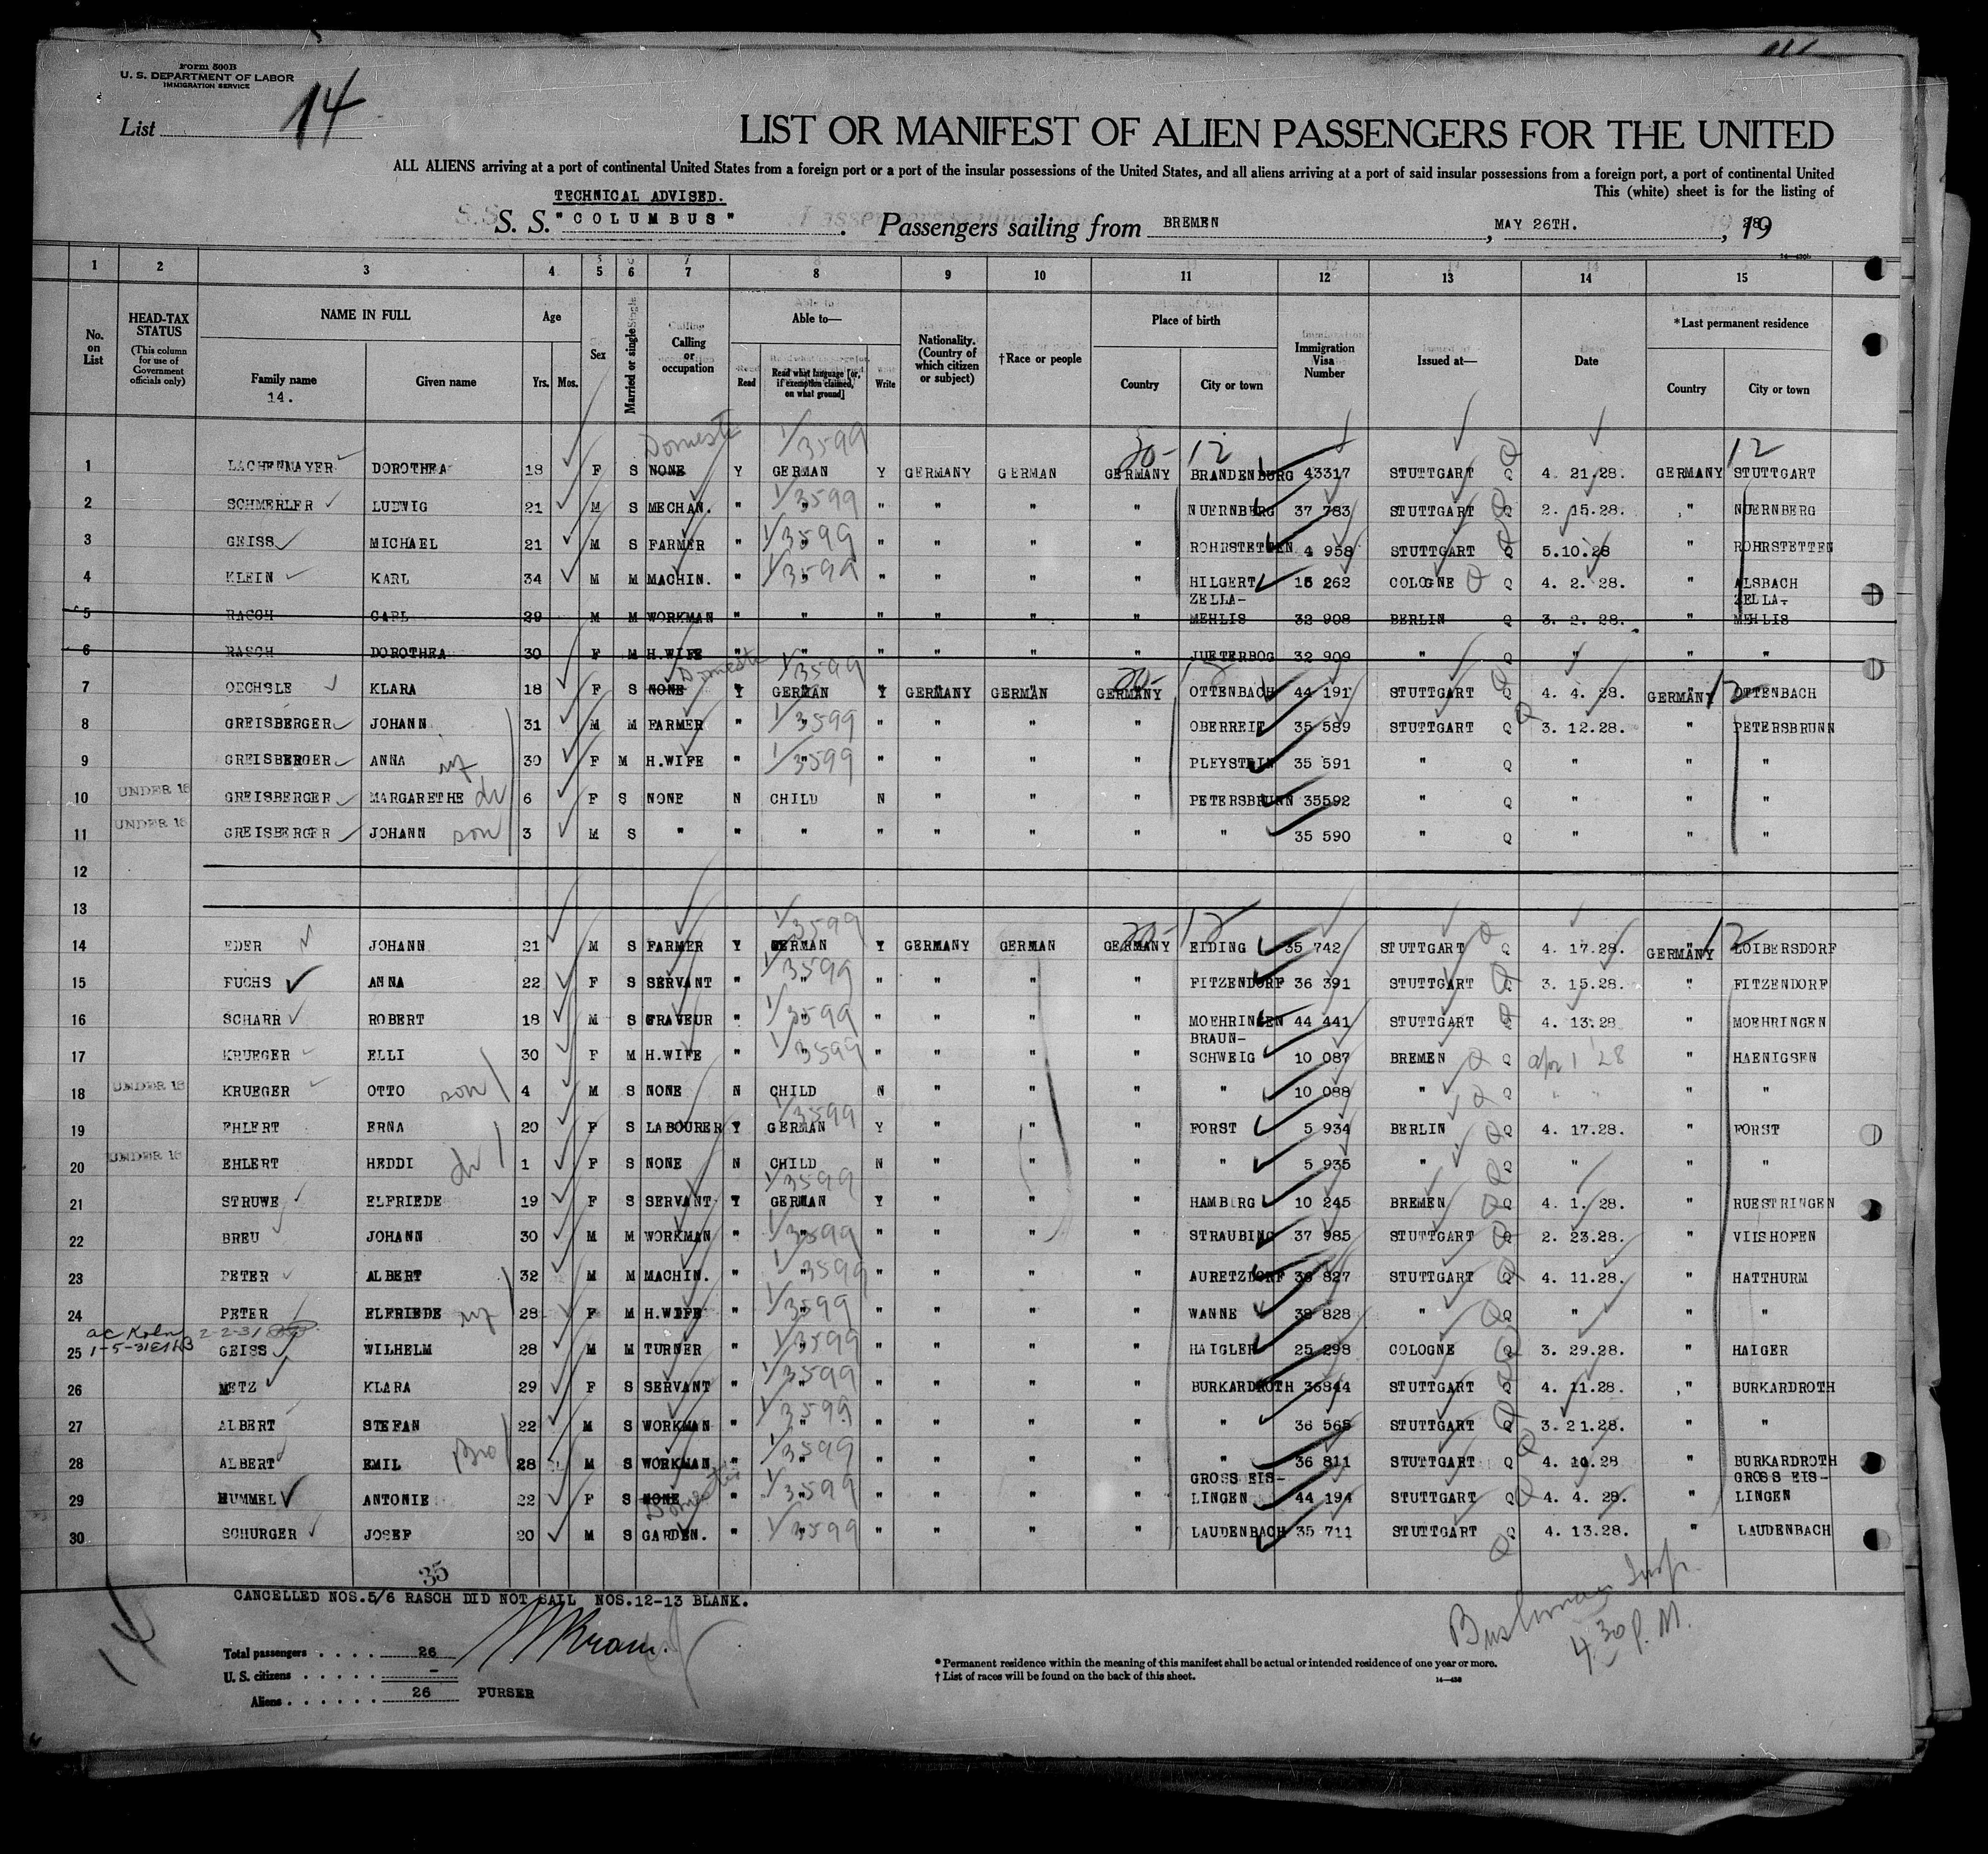 Form 500B
U. S. DEPARTMENT OF LABOR
IMMIGRATION SERVICE
List 14
LIST OR MANIFEST OF ALIEN PASSENGERS FOR THE UNITED
ALL ALIENS arriving at a port of continental United States from a foreign port or a port of the insular possessions of the United States, and all aliens arriving at a port of said insular possessions from a foreign port, a port of continental United
This (white) sheet is for the listing of
TECHNICAL ADVISED.
S. S. "COLUMBUS". Passengers sailing from BREMEN, MAY 26TH., 1928
1 2 3 4 5 6 7 8 9 10 11 12 13 14 15
No. on List
HEAD-TAX STATUS (This column for use of Government officials only)
NAME IN FULL
Family name 14.
Given name
Age Yrs. Mos.
Sex
Married or single
Calling or occupation
Able to—
Read
Read what language [or, if exemption claimed, on what ground]
Write
Nationality. (Country of which citizen or subject)
†Race or people
Place of birth
Country
City or town
Immigration Visa Number
Issued at—
Date
*Last permanent residence
Country
City or town
1 LACHENMAYER DOROTHEA 18 F S NONE Domestic Y GERMAN 1/3599 Y GERMANY GERMAN GERMANY BRANDENBURG 43317 STUTTGART Q 4. 21.28. GERMANY STUTTGART
2 SCHMERLER LUDWIG 21 M S MECHAN. " " 1/3599 " " " " NUERNBERG 37 783 STUTTGART Q 2. 15.28. " NUERNBERG
3 GEISS MICHAEL 21 M S FARMER " " 1/3599 " " " " ROHRSTETTEN 4 958 STUTTGART Q 5.10.28 " ROHRSTETTEN
4 KLEIN KARL 34 M M MACHIN. " " 1/3599 " " " " HILGERT 15 262 COLOGNE Q 4. 2. 28. " ALSBACH
5 RASCH CARL 29 M M WORKMAN " " " " " " ZELLA-MEHLIS 32 908 BERLIN Q 3. 2. 28. ZELLA-MEHLIS
6 RASCH DOROTHEA 30 F M H.WIFE " " " " " " JUETERBOG 32 909 " Q " "
7 OECHSLE KLARA 18 F S NONE Domestic Y GERMAN 1/3599 Y GERMANY GERMAN GERMANY OTTENBACH 44 191 STUTTGART Q 4. 4. 28. GERMANY OTTENBACH
8 GREISBERGER JOHANN 31 M M FARMER " " 1/3599 " " " " OBERREIT 35 589 STUTTGART Q 3. 12.28. " PETERSBRUNN
9 GREISBERGER ANNA 30 F M H.WIFE " " 1/3599 " " " " PLEYSTEIN 35 591 " Q " " "
10 UNDER 16 GREISBERGER MARGARETHE 6 F S NONE N CHILD N " " " PETERSBRUNN 35592 " Q " " "
11 UNDER 16 GREISBERGER JOHANN son 3 M S " " " " " " " " 35 590 " Q " " "
12
13
14 EDER JOHANN 21 M S FARMER Y GERMAN 1/3599 Y GERMANY GERMAN GERMANY EIDING 35 742 STUTTGART Q 4. 17.28. GERMANY LOIBERSDORF
15 FUCHS ANNA 22 F S SERVANT " " 1/3599 " " " " FITZENDORF 36 391 STUTTGART Q 3. 15.28. " FITZENDORF
16 SCHARR ROBERT 18 M S GRAVEUR " " 1/3599 " " " " MOEHRINGEN 44 441 STUTTGART Q 4. 13.28 " MOEHRINGEN
17 KRUEGER ELLI 30 F M H.WIFE " " 1/3599 " " " " BRAUN-SCHWEIG 10 087 BREMEN Q apr 1 '28 " HAENIGSEN
18 UNDER 16 KRUEGER OTTO son 4 M S NONE N CHILD N " " " " 10 088 " Q " " "
19 EHLERT ERNA 20 F S LABOURER Y GERMAN 1/3599 Y " " " FORST 5 934 BERLIN Q 4. 17.28. " FORST
20 UNDER 16 EHLERT HEDDI 1 F S NONE N CHILD N " " " " 5 935 " Q " " "
21 STRUWE ELFRIEDE 19 F S SERVANT Y GERMAN 1/3599 Y " " " HAMBURG 10 245 BREMEN Q 4. 1. 28. " RUESTRINGEN
22 BREU JOHANN 30 M M WORKMAN " " 1/3599 " " " " STRAUBING 37 985 STUTTGART Q 2. 23.28. " VILSHOFEN
23 PETER ALBERT 32 M M MACHIN. " " 1/3599 " " " " AURETZDORF 38 827 STUTTGART Q 4. 11.28. " HATTHURM
24 PETER ELFRIEDE 28 F M H.WIFE " " 1/3599 " " " " WANNE 38 828 " Q " " "
25 GEISS WILHELM 28 M M TURNER " " 1/3599 " " " " HAIGLER 25 298 COLOGNE Q 3. 29.28. " HAIGER
26 METZ KLARA 29 F S SERVANT " " 1/3599 " " " " BURKARDROTH 36844 STUTTGART Q 4. 11.28. " BURKARDROTH
27 ALBERT STEFAN 22 M S WORKMAN " " 1/3599 " " " " " 36 565 STUTTGART Q 3. 21.28. " "
28 ALBERT EMIL Bro 28 M S WORKMAN " " 1/3599 " " " " " 36 811 STUTTGART Q 4. 10.28 " BURKARDROTH
29 HUMMEL ANTONIE 22 F S NONE Domestic " " 1/3599 " " " " GROSS EIS-LINGEN 44 194 STUTTGART Q 4. 4. 28. " GROSS EIS-LINGEN
30 SCHURGER JOSEF 20 M S GARDEN. " " 1/3599 " " " " LAUDENBACH 35 711 STUTTGART Q 4. 13.28. " LAUDENBACH
35
CANCELLED NOS.5/6 RASCH DID NOT SAIL NOS.12-13 BLANK.
14
Total passengers . . . . 26
U. S. citizens . . . . . –
Aliens . . . . . . 26 PURSER
* Permanent residence within the meaning of this manifest shall be actual or intended residence of one year or more.
† List of races will be found on the back of this sheet.
4 30 P. M.